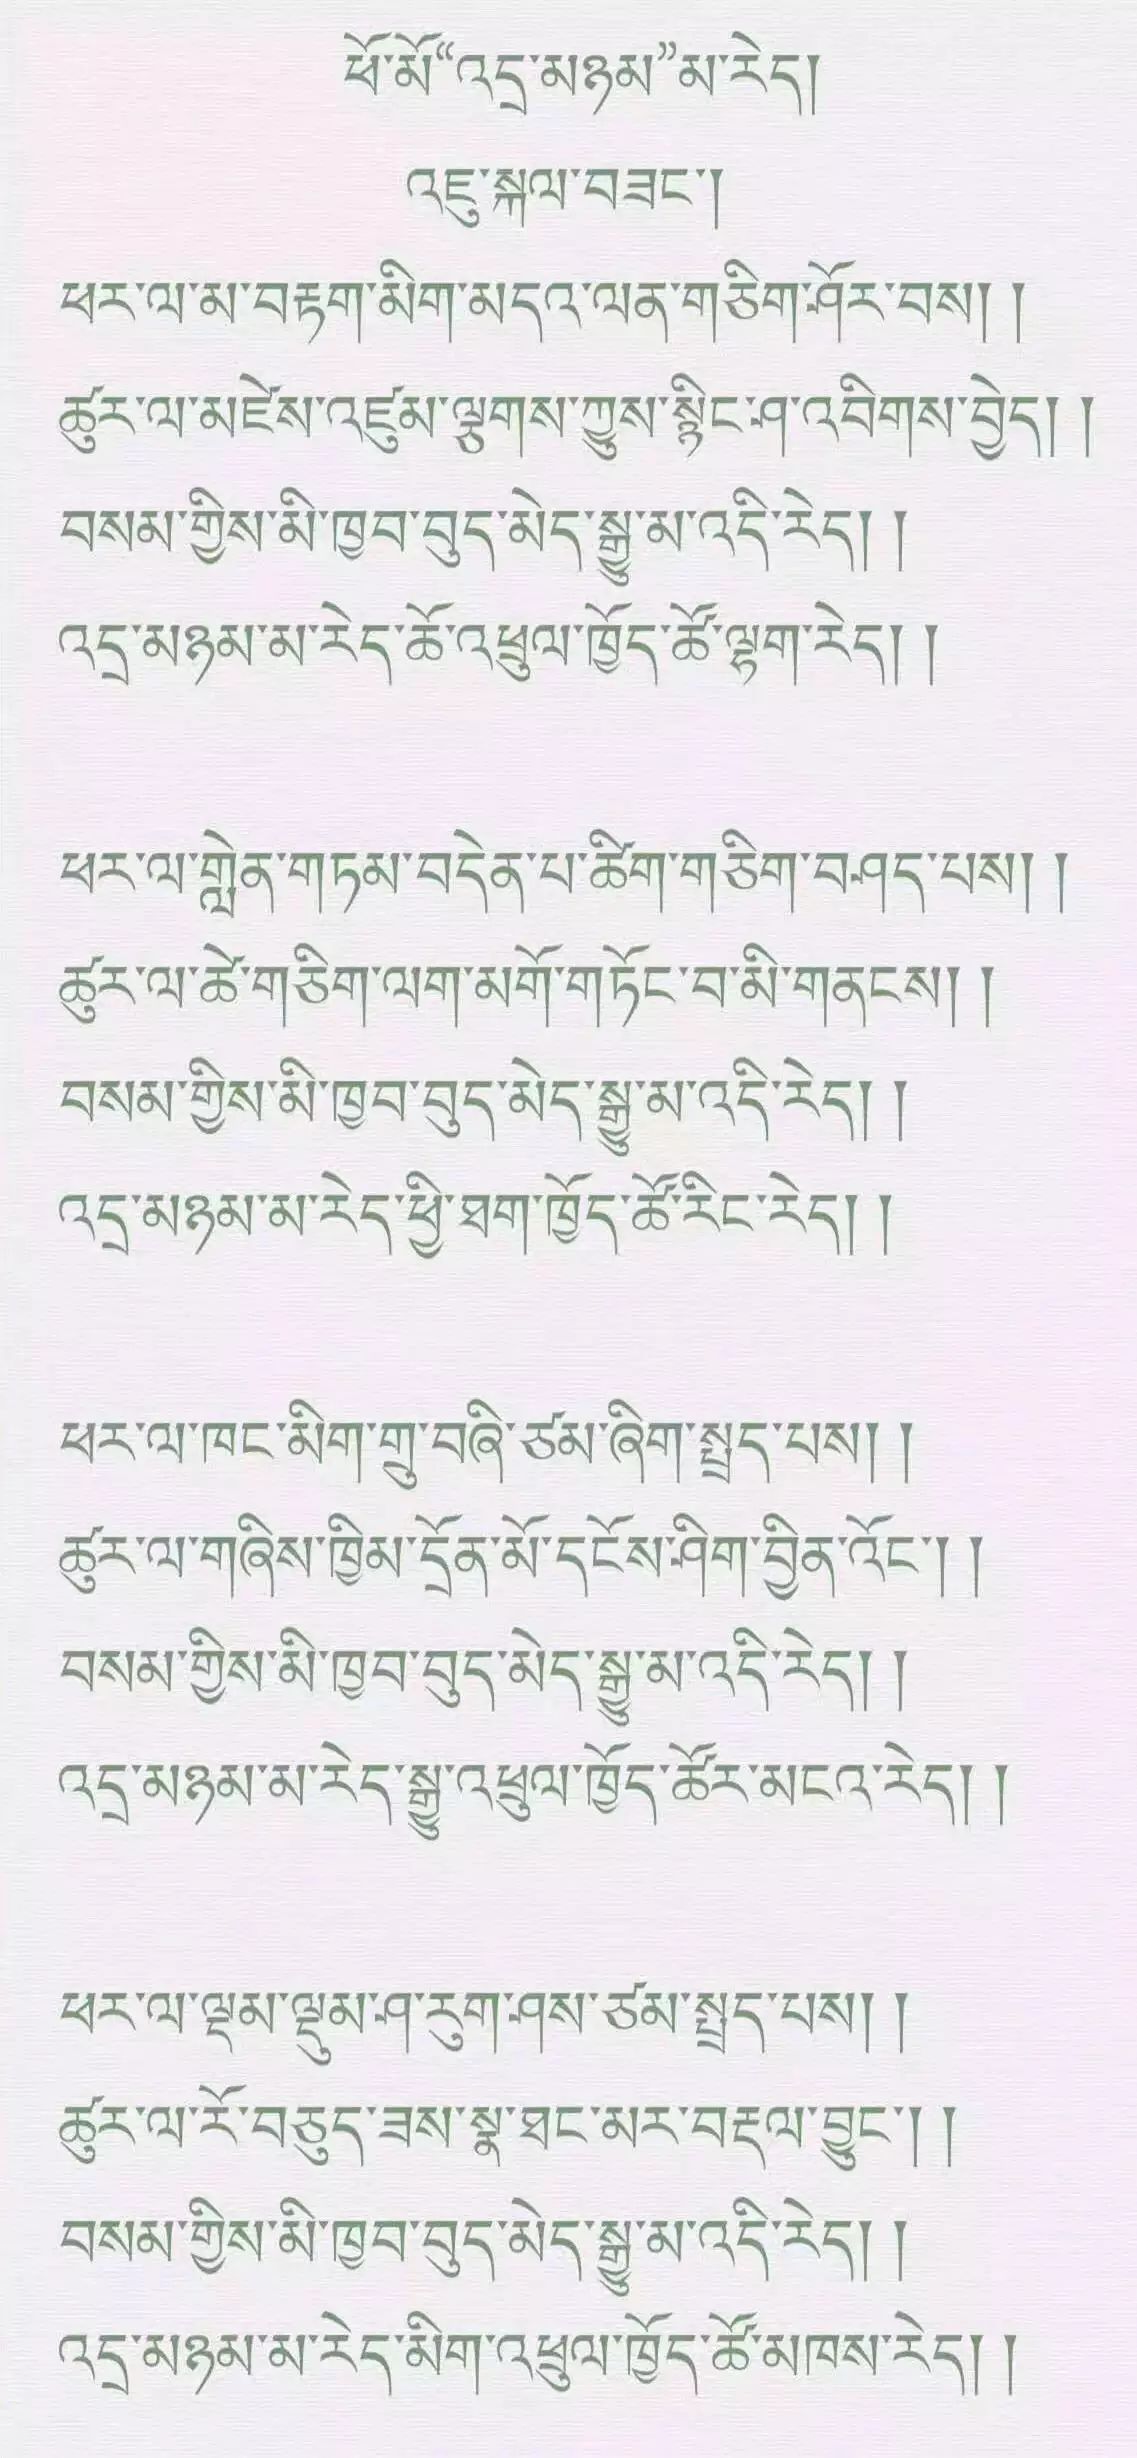 ཕོ་མོ“འདྲ་མཉམ”མ་རེད།
འཇུ་སྐལ་བཟང་།
ཕར་ལ་མ་བརྟག་མིག་མདའ་ལན་གཅིག་ཤོར་བས། །
ཚུར་ལ་མཛེས་འཛུམ་ལྕགས་ཀྱུས་སྙིང་ཤ་འབིགས་བྱེད། །
བསམ་གྱིས་མི་ཁྱབ་བུད་མེད་སྒྱུ་མ་འདི་རེད། །
འདྲ་མཉམ་མ་རེད་ཆོ་འཕྲུལ་ཁྱོད་ཚོ་ལྷག་རེད། །
ཕར་ལ་གླེན་གཏམ་བདེན་པ་ཚིག་གཅིག་བཤད་པས། །
ཚུར་ལ་ཚེ་གཅིག་ལག་མགོ་གཏོང་བ་མི་གནངས། །
བསམ་གྱིས་མི་ཁྱབ་བུད་མེད་སྒྱུ་མ་འདི་རེད། །
འདྲ་མཉམ་མ་རེད་ཕྱི་ཐག་ཁྱོད་ཚོ་རིང་རེད། །
ཕར་ལ་ཁང་མིག་གྲུ་བཞི་ཙམ་ཞིག་སྤྲད་པས། །
ཚུར་ལ་གཞིས་ཁྱིམ་དྲོན་མོ་དངོས་ཤིག་བྱིན་འོང་། །
བསམ་གྱིས་མི་ཁྱབ་བུད་མེད་སྒྱུ་མ་འདི་རེད། །
འདྲ་མཉམ་མ་རེད་སྒྱུ་འཕྲུལ་ཁྱོད་ཚོར་མངའ་རེད། །
ཕར་ལ་ལྡམ་ལྡུམ་ཤ་རུག་ཤས་ཙམ་སྤྲད་པས། །
ཚུར་ལ་རོ་བཅུད་ཟས་སྣ་ཐང་མར་བརྡལ་བྱུང་། །
བསམ་གྱིས་མི་ཁྱབ་བུད་མེད་སྒྱུ་མ་འདི་རེད། །
འདྲ་མཉམ་མ་རེད་མིག་འཕྲུལ་ཁྱོད་ཚོ་མཁས་རེད། །